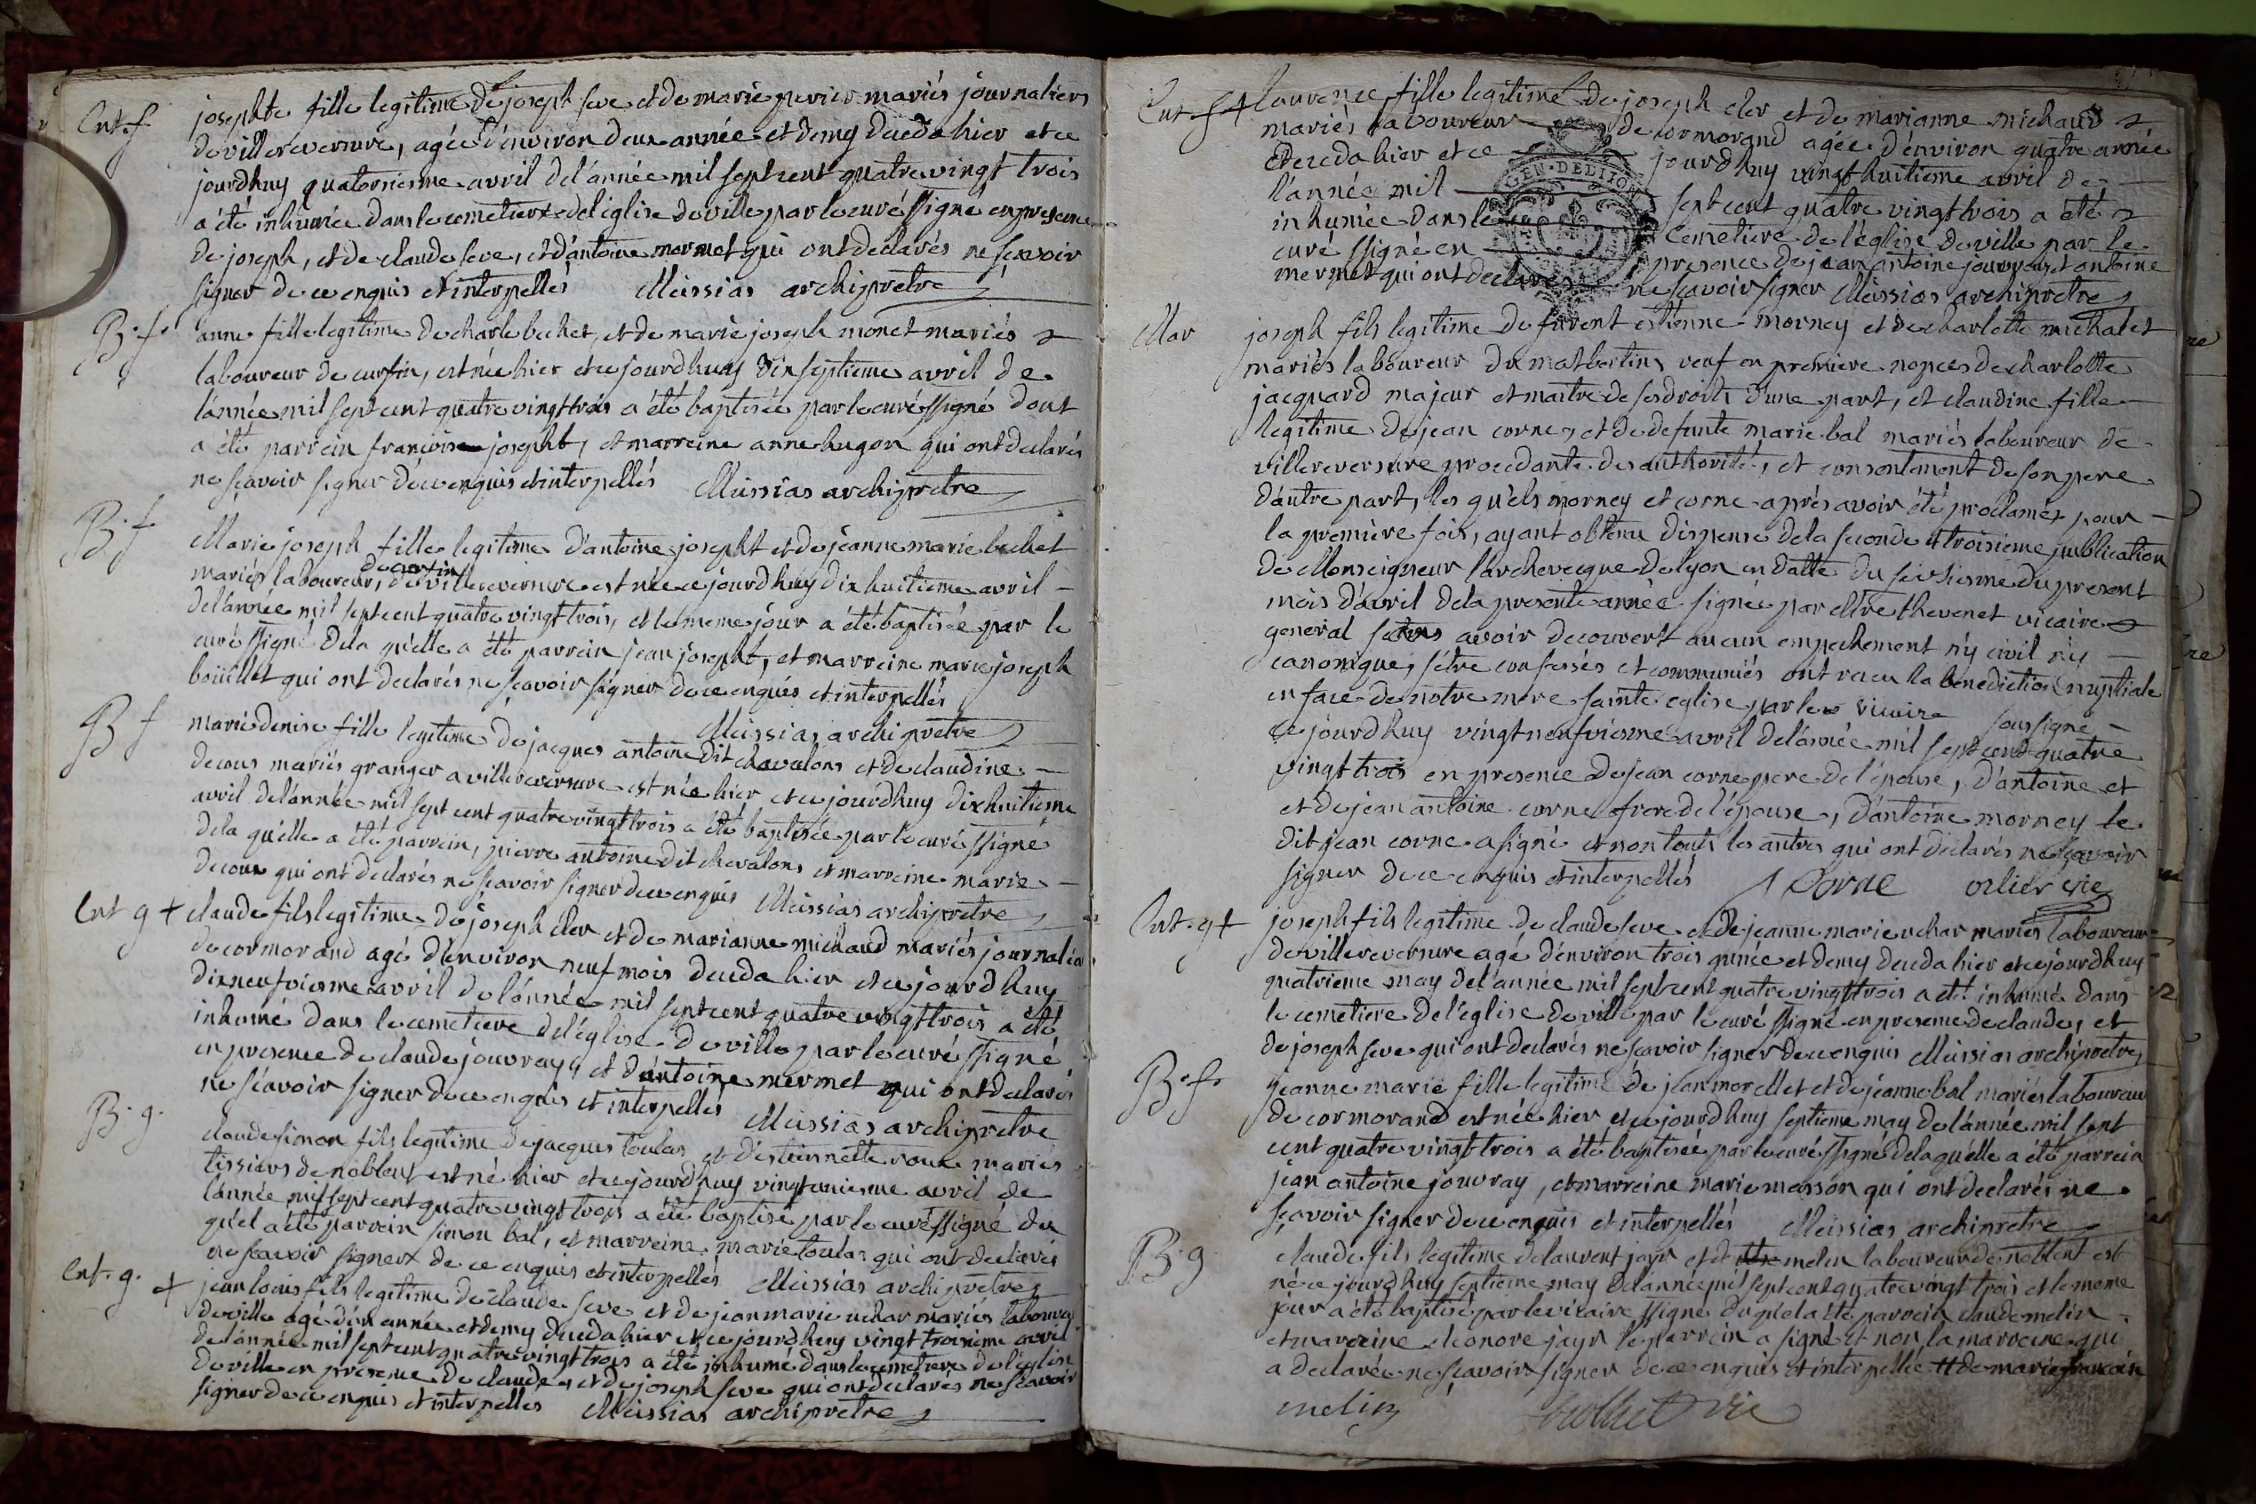 Ent. f
josephte fille legitime de joseph seve et de marie perier mariés journaliers
de villereversure, agée d'environ deux année et demy decedé hier et ce
jourdhuy quatorsiesme avril de l'année mil sept cent quatre vingt trois
a été inhumée dans le cemetiere de l'église de ville par le curé ssigné en presence
de joseph, et de claude seve, et d'antoine mermet qui ont declarés ne scavoir
signer de ce enquis et interpellés Messias archiprêtre
B. f.
anne fille legitime de charle bechet, et de marie joseph monet mariés
laboureur de curfin, est née hier et ce jourdhuy dix septieme avril de
l'année mil sept cent quatre vingt trois a été baptisée par le curé ssigné dont
a été parrein françois josepht, et marreine anne hugon qui ont declarés
ne sçavoir signer de ce enquis et interpellés Messias archipretre
B. f
Marie joseph fille legitime d'antoine josepht et de jeanne marie bechet
de curfin
mariés laboureur, de villereversure est née ce jourdhuy dix huitieme avril
de l'année mil sept cent quatre vingt trois, et le meme jour a été baptisée par le
curé ssigné de la quelle a été parrein jean josepht, et marreine marie joseph
boüillet qui ont declarés ne sçavoir signer de ce enquis et interpellés
Messias archiprêtre
B f
marie denise fille legitime de jacques antoine dit chavalons et de claudine
decour mariés granger a villereversure est née hier et ce jourdhuy dix huitieme
avril de l'année mil sept cent quatre vingt trois a été baptisée par le curé ssigné
de la quelle a été parrein, pierre antoine dit chevalons et marreine marie
decour qui ont declarés ne sçavoir signer de ce enquis Messias archiprêtre
Ent g +
claude fils legitime de joseph cler et de marianne michaud mariés journalier
de cormorand agé d'environ neuf mois decedé hier et ce jourdhuy
dixneufviesme avril de l'année mil sept cent quatre vingt trois a été
inhumé dans le cemetiere de l'église de ville par le curé ssigné
en presence de claude jouvray, et d'antoine mermet qui ont declarés
ne sçavoir signer de ce enquis et interpellés Messias archiprêtre
B. g.
claude simon fils legitime de jacques toulas et d'estiennette roux mariés
tissiers de noblent est né hier et ce jourdhuy vingtuniesme avril de
l'année mil sept cent quatre vingt trois a été baptisé par le curé ssigné du
quel a été parrein simon bal, et marreine marie toulas qui ont declarés
ne scavoir signer de ce enquis et interpellés Messias archiprêtre
Ent. g. +
jean louis fils legitime de claude seve et de jean marie uchar mariés laboureur
de ville agé d'un année et demy decedé hier et ce jourdhuy vingt troisieme avril
de l'année mil sept cent quatre vingt trois a été inhumé dans le cemetiere de l'eglise
de ville en presence de claude, et de joseph seve qui ont declarés ne sçavoir
signer de ce enquis et interpellés Messias archiprêtre
Ent f +
laurence fille legitime de joseph cler et de marianne michaud
mariés laboureur de cormorand agée d'environ quatre année
decedé hier et ce jourdhuy vingt huitieme avril de
l'année mil sept cent quatre vingt trois a été
inhumée dans le cemetiere de l'église de ville par le
curé ssigné en presence de jean antoine jouvray et antoine
mermet qui ont declarés ne scavoir signer Messias archiprêtre
GEN. DE DIJON
Mar
joseph fils legitime de furent estienne morney et de charlotte michalet
mariés laboureur du mas bertin, veuf en premiere nopces de charlotte
jacquard majeur et maitre de ses droits d'une part, et claudine fille
legitime de jean corne, et de defunte marie bal mariés laboureur de
villereversure procedante des authorité, et consentement de son pere
d'autre part, les quels morney et corne après avoir été proclamez pour
la premiere fois, ayant obtenu dispense de la seconde et troisieme publication
de Monseigneur l'archevecque de lyon en datte du seisiesme du present
mois d'avril de la presente année signée par Mtre thevenet vicaire
general sans avoir decouvert aucun empechement n'y civil n'y
canonique, s'être confessés et communiés ont receu la benediction nuptiale
en face de notre mere sainte eglise par le vicaire soussigné
ce jourdhuy vingt neufviesme avril de l'année mil sept cent quatre
vingt trois en presence de jean corne pere de l'épouse, d'antoine et
et de jean antoine corne frere de l'épouse, d'antoine morney le
dit jean corne a signé et non touts les autres qui ont declarés ne sçavoir
signer de ce enquis et interpellés J Corne orlier vic
Ent. g +
joseph fils legitime de claude seve et de jeanne marie uchar mariés laboureur
de villereversure agé d'environ trois année et demy decedé hier et ce jourdhuy
quatrieme may de l'année mil sept cent quatre vingt trois a été inhumé dans
le cemetiere de l'église de ville par le curé ssigné en presence de claude, et
de joseph seve qui ont declarés ne sçavoir signer de ce enquis Messias archiprêtre
B. f.
jeanne marie fille legitime de jean morellet et de jeanne bal mariés laboureur
de cormorand est née hier et ce jourdhuy septieme may de l'année mil sept
cent quatre vingt trois a été baptisée par le curé ssigné de la quelle a été parrein
jean antoine jouvray, et marreine marie masson qui ont declarés ne
sçavoir signer de ce enquis et interpellés Messias archipretre
B. g
claude fils legitime de laurent jayr et d melin laboureur de noblent est
né ce jourdhuy septieme may de l'année mil sept cent quatre vingt trois et le meme
jour a été baptisé par le vicaire ssigné du quel a été parrein claude melin
et marreine eleonore jayr le parrein a signé et non la marreine qui
a declarée ne sçavoir signer de ce enquis et interpellée # de marie françoise
melin vic